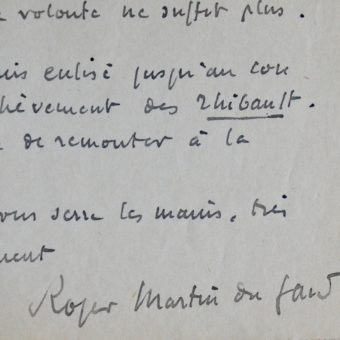 volonté ne suffit plus.
uis enlisé jusqu'au cou
hèvement des Thibault.
de remonter à la
ous serre les mains, très
ment
Roger Martin du Gard